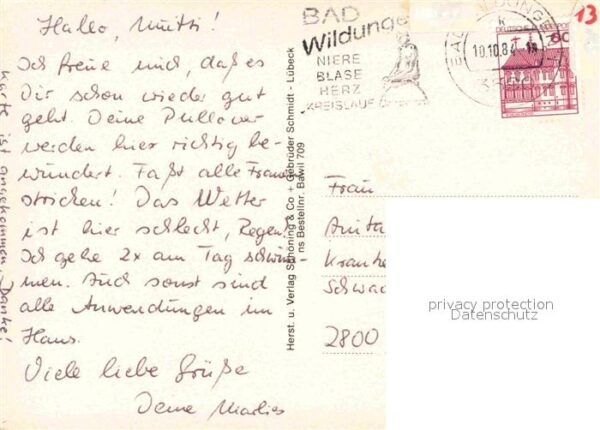 Hallo, Mutti!
Ich freue mich, daß es
Dir schon wieder gut
geht. Deine Pullover
werden hier richtig be-
wundert. Fast alle Frauen
stricken! Das Wetter
ist hier schlecht, Regen!
Ich gehe 2x am Tag schwim-
men. Auch sonst sind
alle Anwendungen im
Haus.
Viele liebe Grüße
Deine Marlies
Karte ist angekommen, Danke!
Herst. u. Verlag Schöning & Co + Gebrüder Schmidt - Lübeck
ns Bestellnr. Bawil 709
BAD
Wildunge
NIERE
BLASE
HERZ
KREISLAUF
10.10.8
60
13
Frau
Anita
Kranke
Schwac
2800
privacy protection
Datenschutz